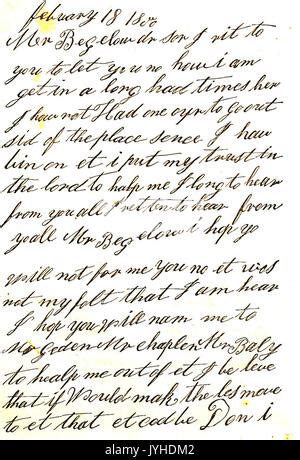 february 18 18
Mr Begelow dr ser I rit to
you to let you no how i am
get in a long had times her
I haw not Had one our to go out
sid of the place sence I haw
bin on et i put my trust in
the lord to halp me I long to hear
from you all I to hear from
yoall Mr Begelow i hop yo
will not for me You no et wos
not my folt that I am hear
I hop you will nam me to
Mr Geden Mr chapler Mr Baly
to healp me out of et I be leve
that if Would mak the les move
to et that et cod be Don i
alamy stock photo
JYHDM2